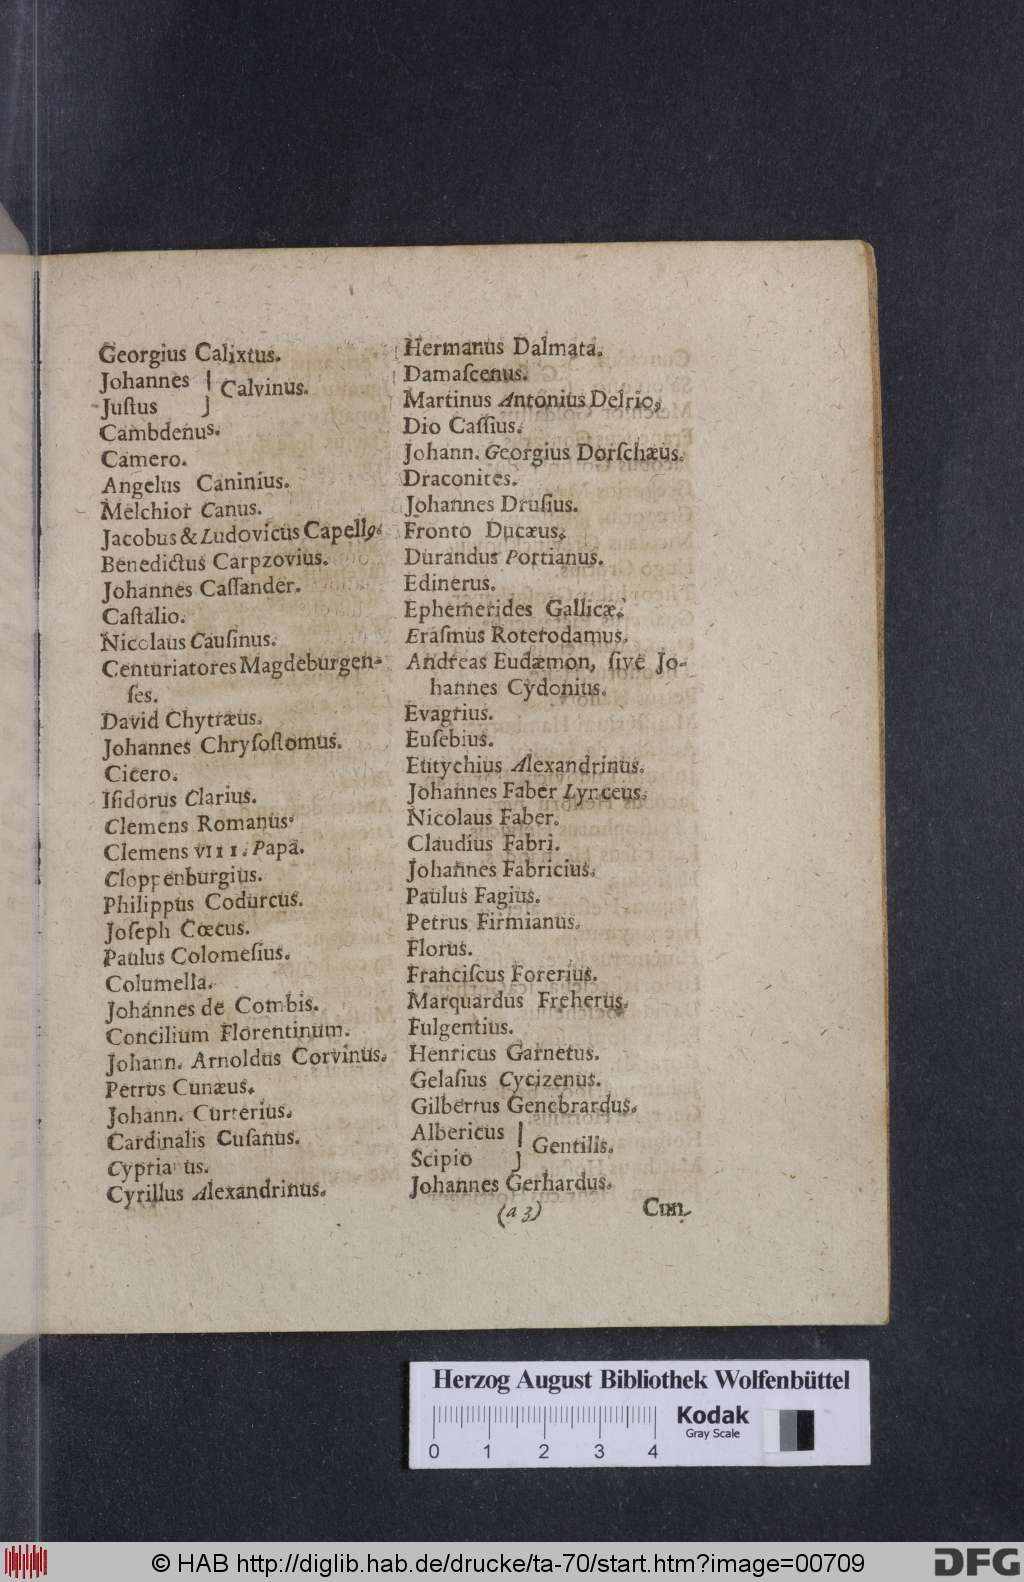 Georgius Calixtus.
Johannes } Calvinus.
Juſtus
Cambdenus.
Camero.
Angelus Caninius.
Melchior Canus.
Jacobus & Ludovicus Capellꝰ.
Benedictus Carpzovius.
Johannes Caſſander.
Caſtalio.
Nicolaus Cauſinus.
Centuriatores Magdeburgen-
ſes.
David Chytræus.
Johannes Chryſoſtomus.
Cicero.
Iſidorus Clarius.
Clemens Romanus.
Clemens VIII. Papa.
Cloppenburgius.
Philippus Codurcus.
Joſeph Cœcus.
Paulus Colomeſius.
Columella.
Johannes de Combis.
Concilium Florentinum.
Johann. Arnoldus Corvinus.
Petrus Cunæus.
Johann. Curterius.
Cardinalis Cuſanus.
Cyprianus.
Cyrillus Alexandrinus.
Hermanus Dalmata.
Damaſcenus.
Martinus Antonius Delrio.
Dio Caſſius.
Johann. Georgius Dorſchæus.
Draconites.
Johannes Druſius.
Fronto Ducæus.
Durandus Portianus.
Edinerus.
Ephemerides Gallicæ.
Eraſmus Roterodamus.
Andreas Eudæmon, ſive Jo-
hannes Cydonius.
Evagrius.
Euſebius.
Eutychius Alexandrinus.
Johannes Faber Lynceus.
Nicolaus Faber.
Claudius Fabri.
Johannes Fabricius.
Paulus Fagius.
Petrus Firmianus.
Florus.
Franciſcus Forerius.
Marquardus Freherus.
Fulgentius.
Henricus Garnetus.
Gelaſius Cycizenus.
Gilbertus Genebrardus.
Albericus } Gentilis.
Scipio
Johannes Gerhardus.
(a 3)
Herzog August Bibliothek Wolfenbüttel
0 1 2 3 4
Kodak
Gray Scale
© HAB http://diglib.hab.de/drucke/ta-70/start.htm?image=00709
DFG